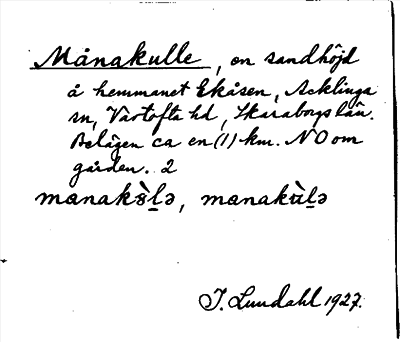 Månakulle, en sandhöjd
å hemmanet Ekåsen, Acklinga
sn, Vartofta hd, Skaraborgs län.
Belägen ca en (1) km. NO om
gården. 2
manakù̱lə
J. Lundahl 1927.